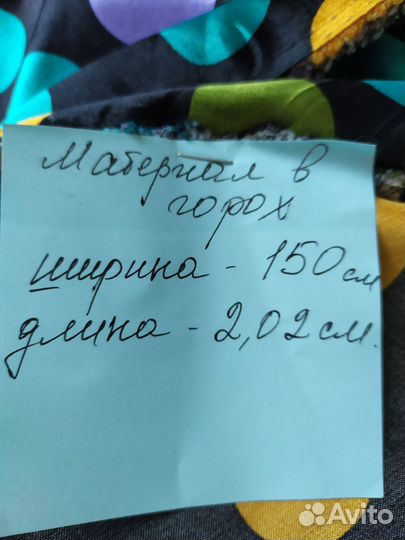 Материал в
горох
ширина - 150 см
длина - 2,02 см.
Avito